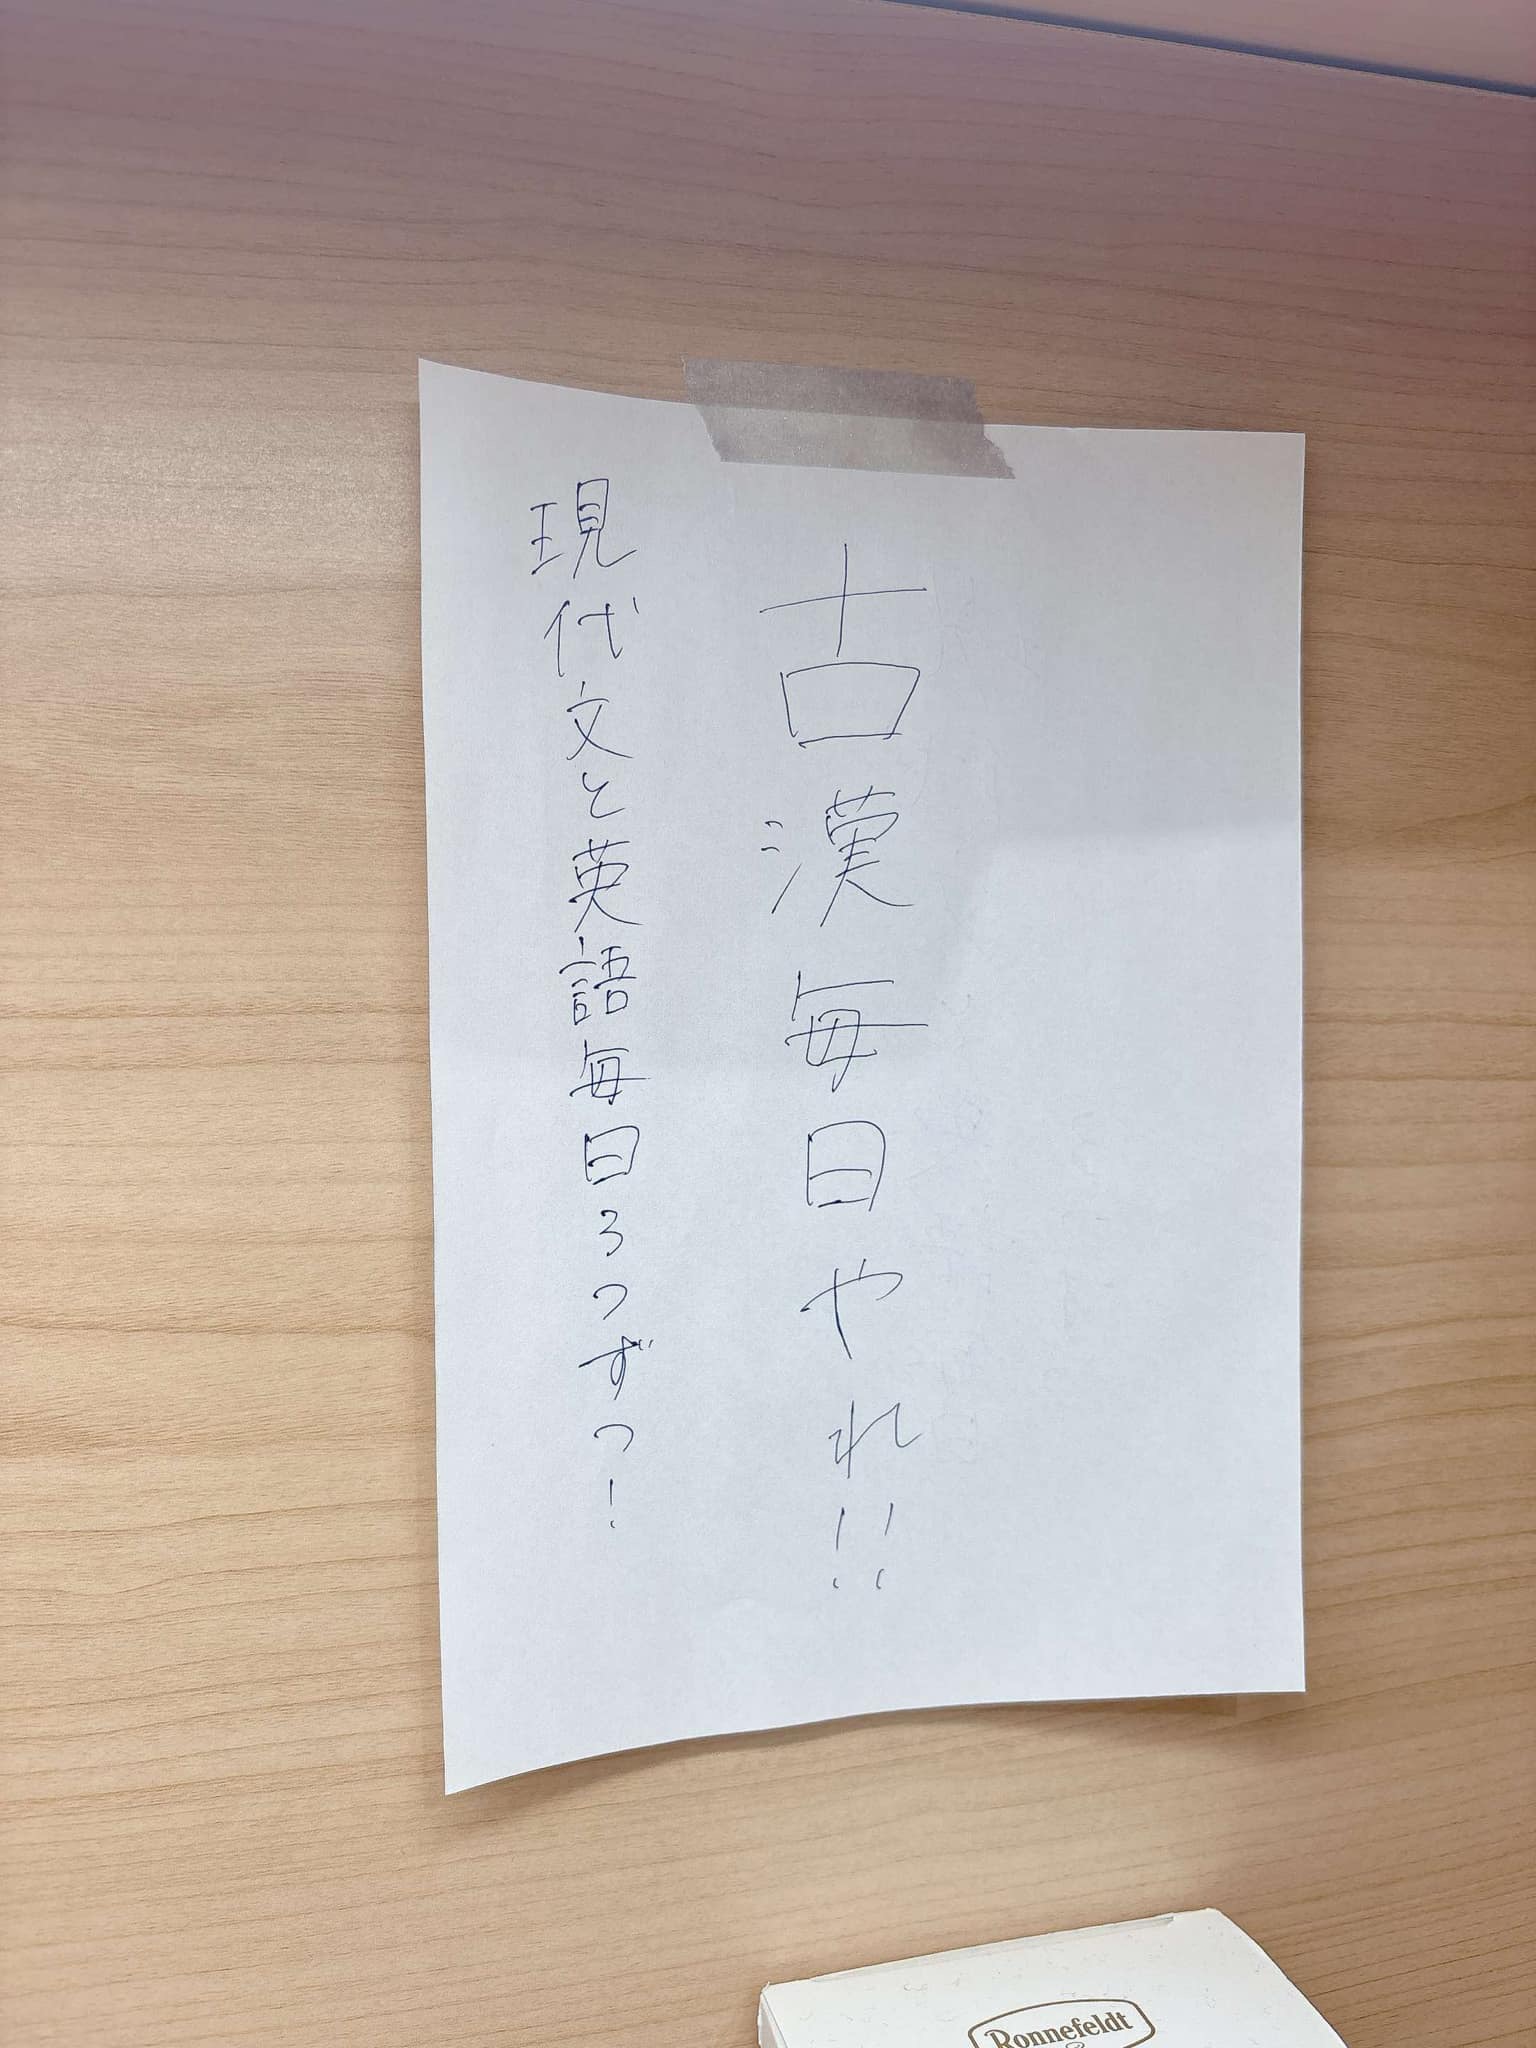 古漢毎日やれ!!
現代文と英語毎日3つずつ!
Ronnefeldt